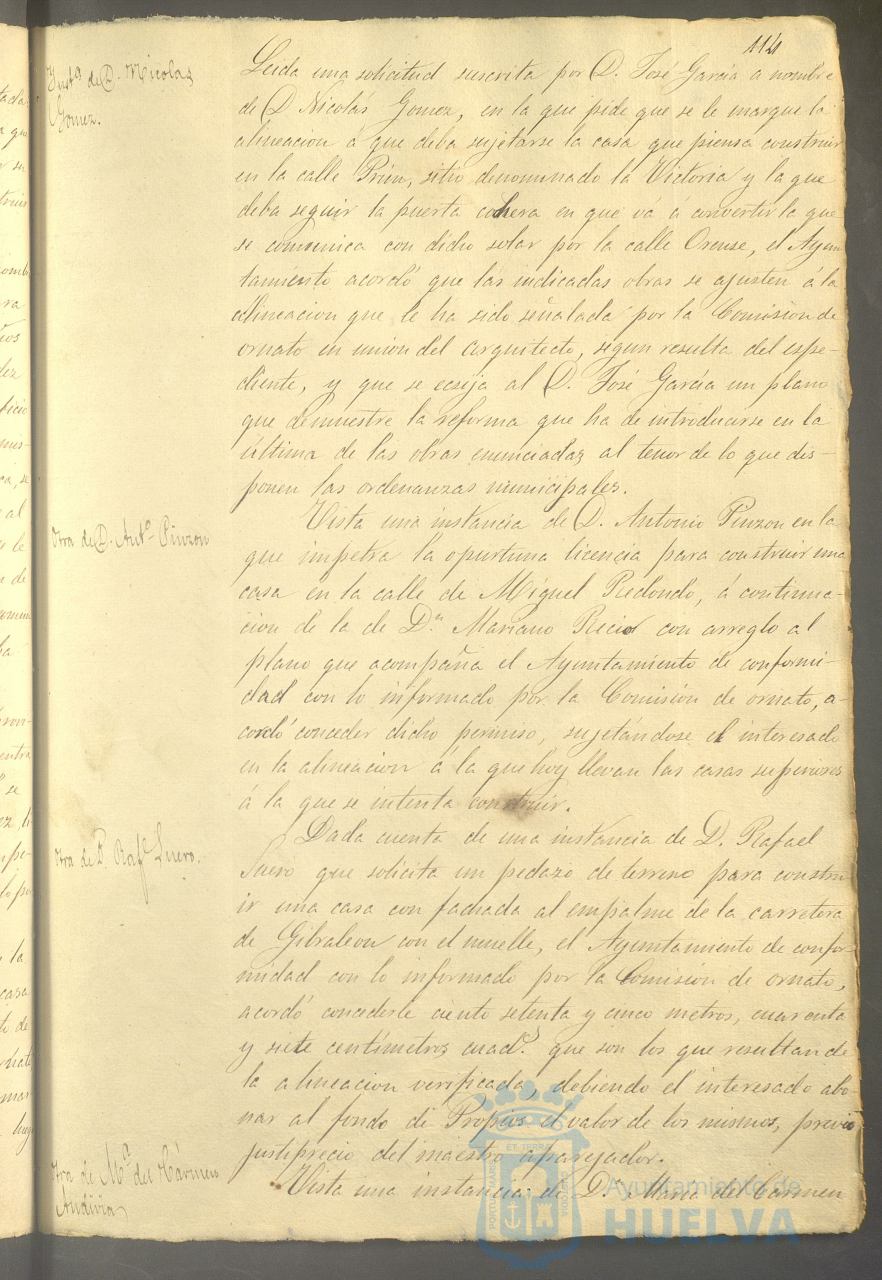 114
Inst.ª de D. Nicolas
Gomez.
Leida una solicitud suscrita por D. José García a nombre
de D Nicolás Gomez, en la que pide que se le marque la
alineacion á que deba sujetarse la casa que piensa construir
en la calle Prim, sitio denominado la Victoria y la que
deba seguir la puerta cohera en que vá á convertir la que
se comunica con dicho solar por la calle Orense, el Ayun
tamiento acordó que las indicadas obras se ajusten á la
alineacion que le ha sido señalada por la Comision de
ornato en union del arquitecto, segun resulta del espe-
diente, y que se ecsija al D. José García un plano
que demuestre la reforma que ha de introducirse en la
última de las obras enunciadas al tenor de lo que dis-
ponen las ordenanzas municipales.
Otra de D. Ant.º Pinzon
Vista una instancia de D. Antonio Pinzon en la
que impetra la oportuna licencia para construir una
casa en la calle de Miguel Redondo, á continua-
cion de la de D.n Mariano Recio con arreglo al
plano que acompaña el Ayuntamiento de conformi-
dad con lo informado por la Comision de ornato, a-
cordó conceder dicho permiso, sujetándose el interesado
en la alineacion á la que hoy llevan las casas superiores
á la que se intenta construir.
Otra de D. Raf.l Suero.
Dada cuenta de una instancia de D. Rafael
Suero que solicita un pedazo de terreno para constru-
ir una casa con fachada al empalme de la carretera
de Gibraleon con el muelle, el Ayuntamiento de confor-
midad con lo informado por la Comision de ornato,
acordó concederle ciento setenta y cinco metros, cuarenta
y siete centímetros cuad.s que son los que resultan de
la alineacion verificada, debiendo el interesado abo-
nar al fondo de Propios el valor de los mismos, previo
justiprecio del maestro aparejador.
Otra de M.ª del Cármen
Andivia
Vista una instancia de D.ª Maria del Carmen
Ayuntamiento de
HUELVA